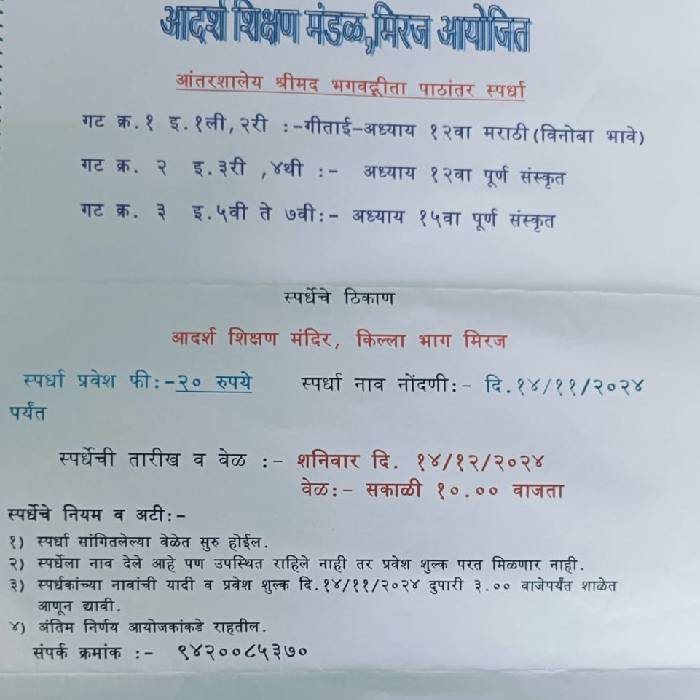 आदर्श शिक्षण मंडळ,मिरज आयोजित
आंतरशालेय श्रीमद भगवद्गीता पाठांतर स्पर्धा
गट क्र.१ इ.१ली,२री :-गीताई-अध्याय १२वा मराठी(विनोबा भावे)
गट क्र. २ इ.३री ,४थी :- अध्याय १२वा पूर्ण संस्कृत
गट क्र. ३ इ.५वी ते ७वी:- अध्याय १५वा पूर्ण संस्कृत
स्पर्धेचे ठिकाण
आदर्श शिक्षण मंदिर, किल्ला भाग मिरज
स्पर्धा प्रवेश फी:-२० रुपये स्पर्धा नाव नोंदणी:- दि.१४/११/२०२४
पर्यंत
स्पर्धेची तारीख व वेळ :- शनिवार दि. १४/१२/२०२४
वेळ:- सकाळी १०.०० वाजता
स्पर्धेचे नियम व अटी:-
१) स्पर्धा सांगितलेल्या वेळेत सुरु होईल.
२) स्पर्धेला नाव देले आहे पण उपस्थित राहिले नाही तर प्रवेश शुल्क परत मिळणार नाही.
३) स्पर्धकांच्या नावांची यादी व प्रवेश शुल्क दि.१४/११/२०२४ दुपारी ३.०० वाजेपर्यंत शाळेत
आणून द्यावी.
४) अंतिम निर्णय आयोजकांकडे राहतील.
संपर्क क्रमांक :- ९४२००८५३७०